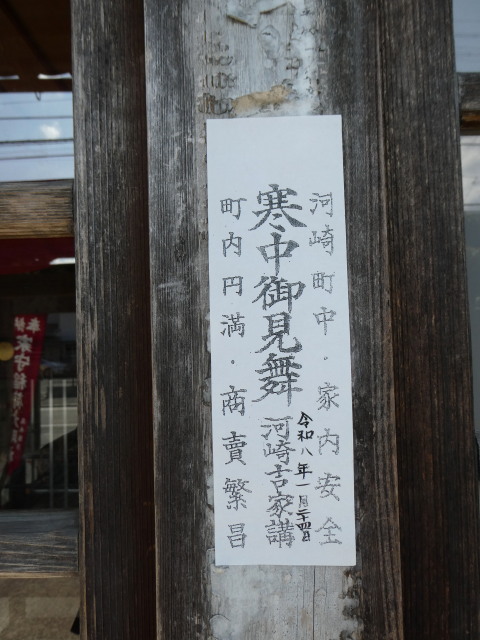 河崎町中・家内安全
寒中御見舞
令和八年一月二十四日
河崎吉家講
町内円満・商売繁昌